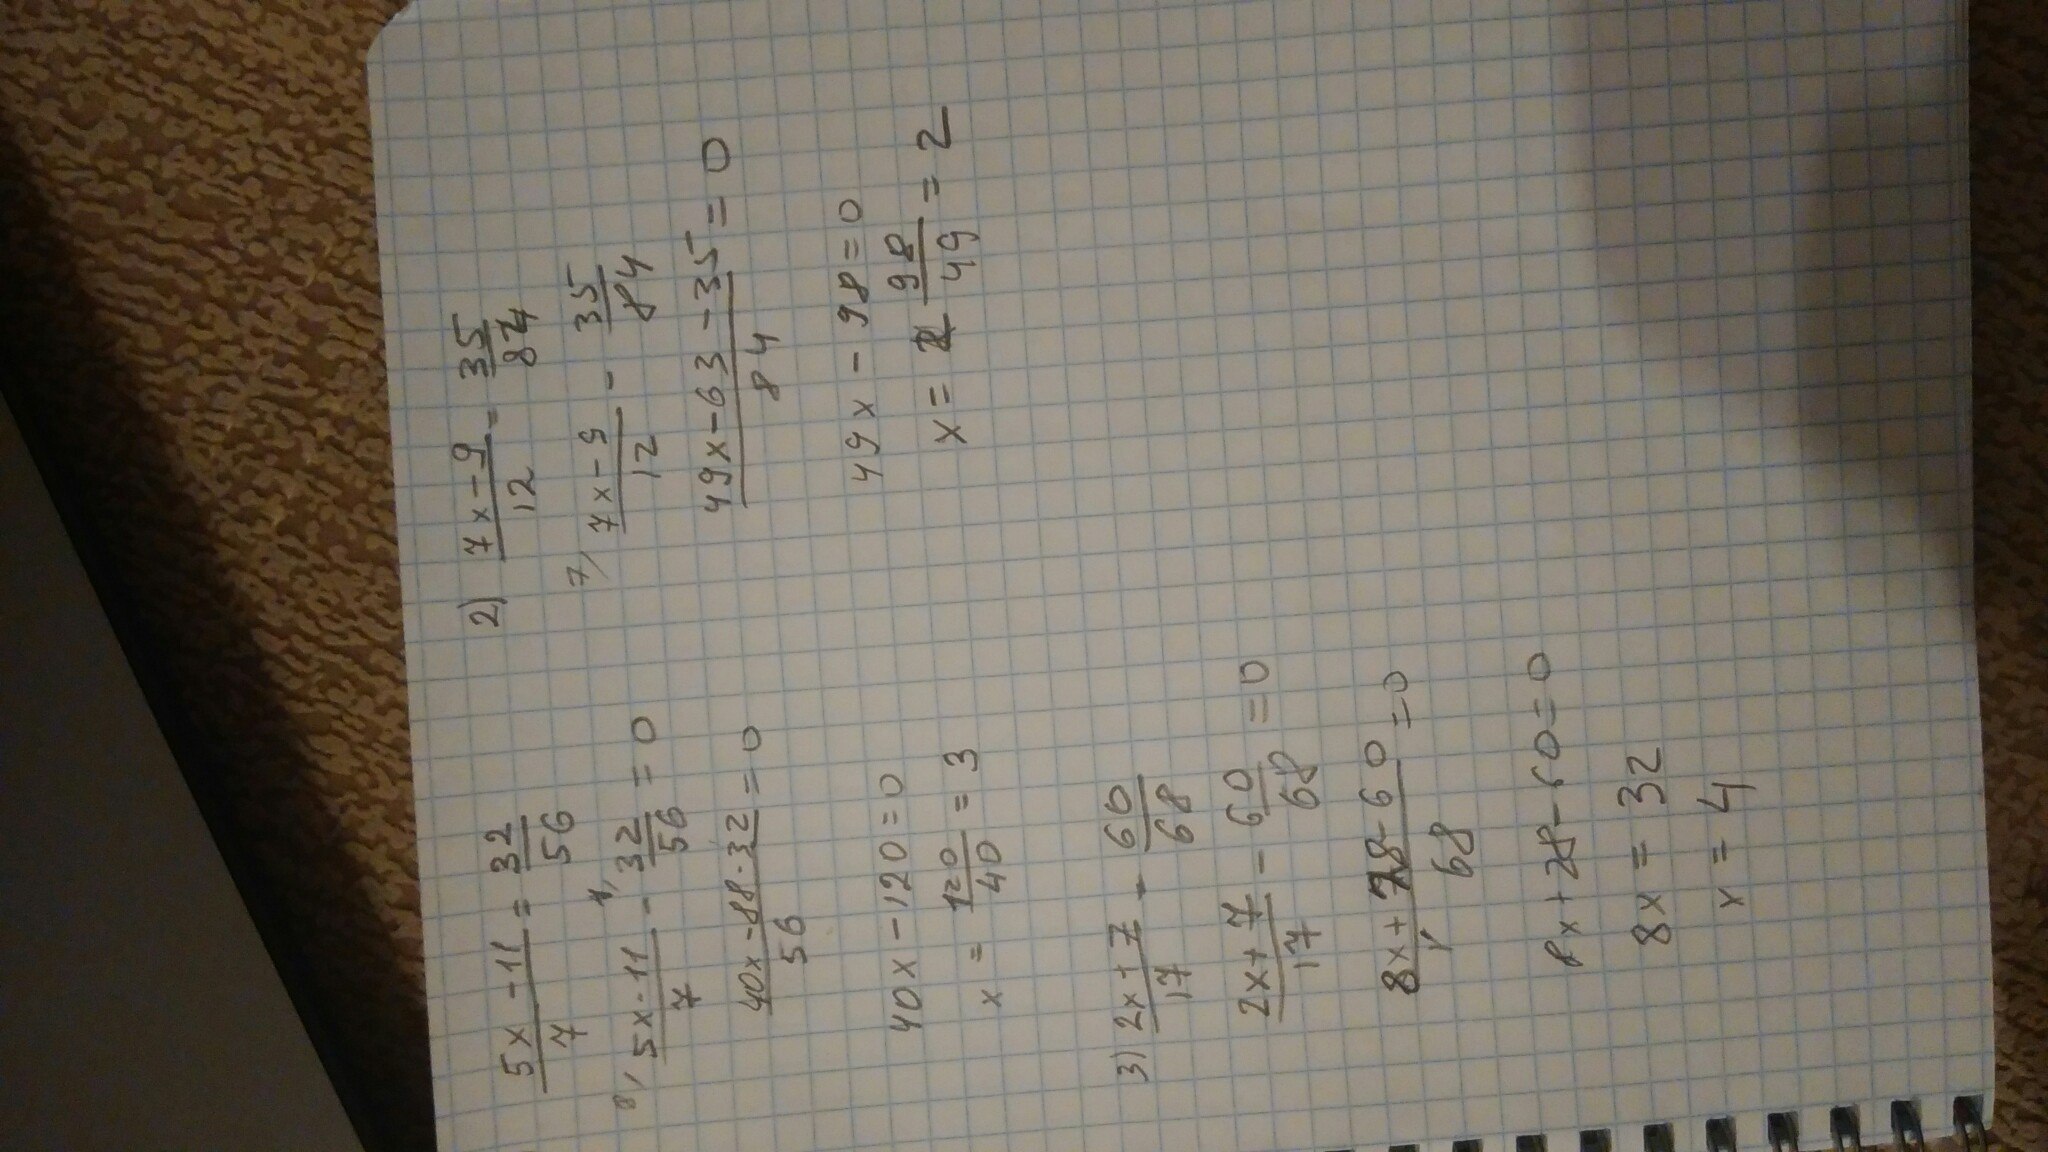 5x-11/7 = 32/56
8, 5x-11/7 - 1, 32/56 = 0
40x-88-32/56 = 0
40x-120=0
x = 120/40 = 3
2) 7x-9/12 = 35/84
7, 7x-9/12 - 35/84
49x-63-35/84 = 0
49x-98=0
x = 98/49 = 2
3) 2x+7/17 - 60/68
2x+7/17 - 60/68 = 0
8x+28-60/68 = 0
8x+28-60=0
8x = 32
x = 4